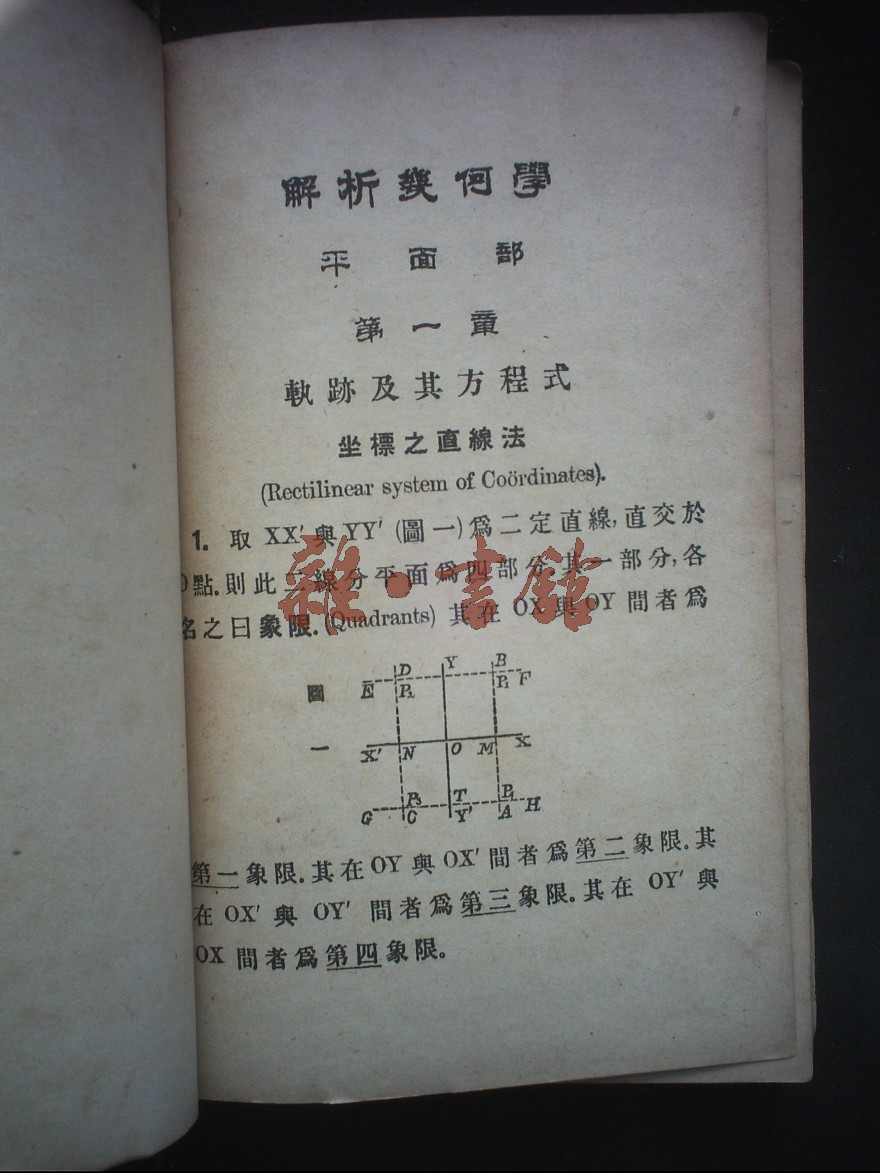 解析幾何學
平面部
第一章
軌跡及其方程式
坐標之直線法
(Rectilinear system of Coördinates).
1. 取 XX′與YY′ (圖一)爲二定直線,直交於
O點.則此二線分平面爲四部分.其一部分,各
名之曰象限.(Quadrants) 其在 OX 與OY 間者爲
圖一
D Y B
E P₂ P₁ F
X′ N O M X
P₃ T P₄
G C Y′ A H
第一象限.其在OY 與 OX′ 間者爲第二象限.其
在 OX′ 與 OY′ 間者爲第三象限.其在 OY′ 與
OX 間者爲第四象限.
雜·書館